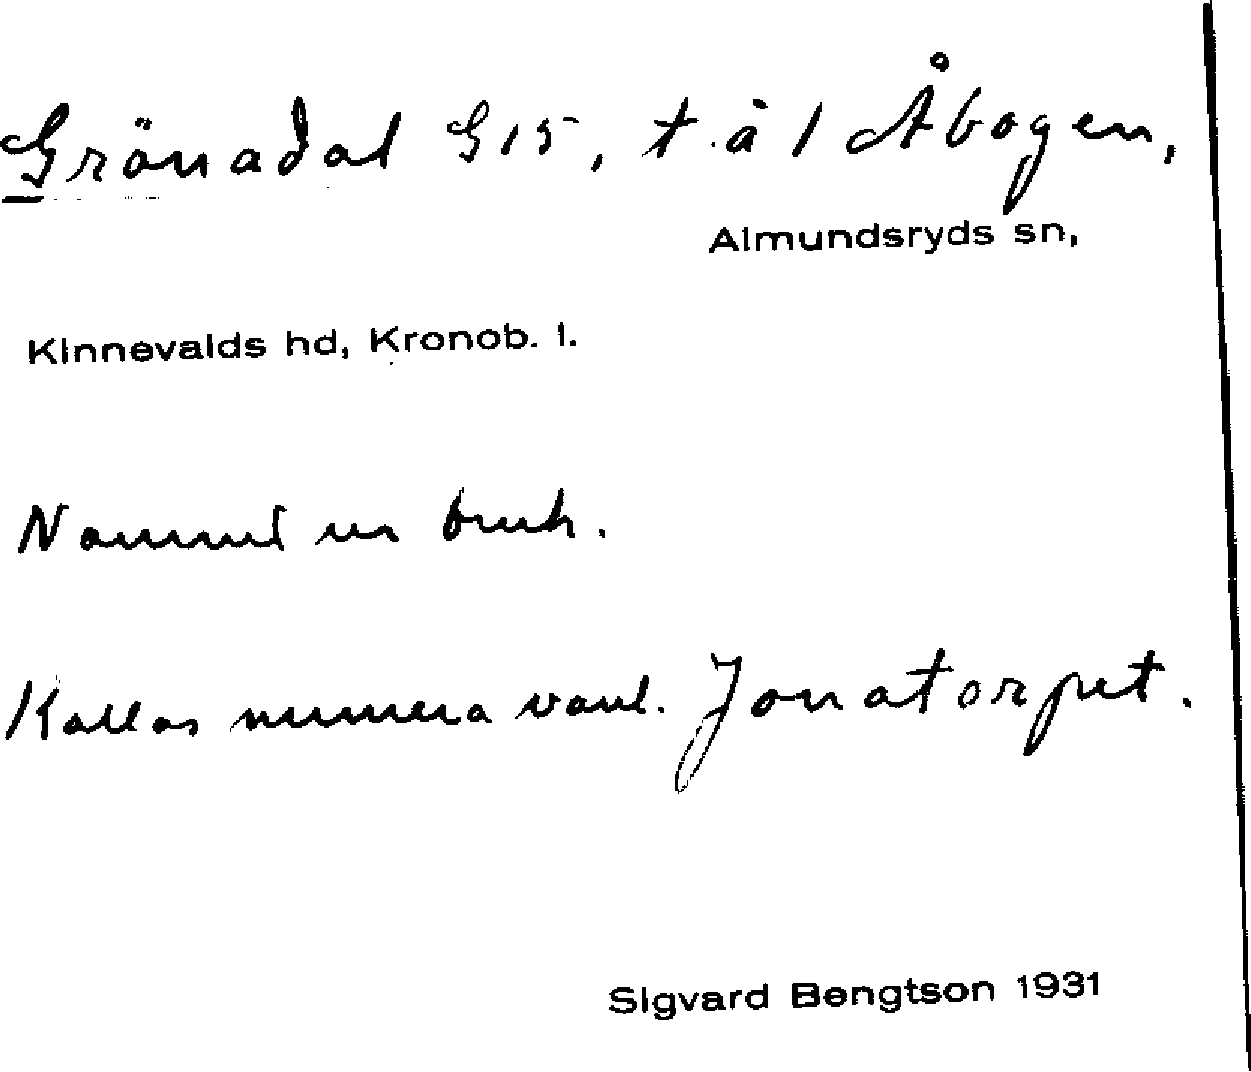 Grönadal G15, t. å 1 Åbogen,
Almundsryds sn,
Kinnevalds hd, Kronob. l.
Namnet ur bruk.
Kallas numera vanl. Jonatorpet.
Sigvard Bengtson 1931